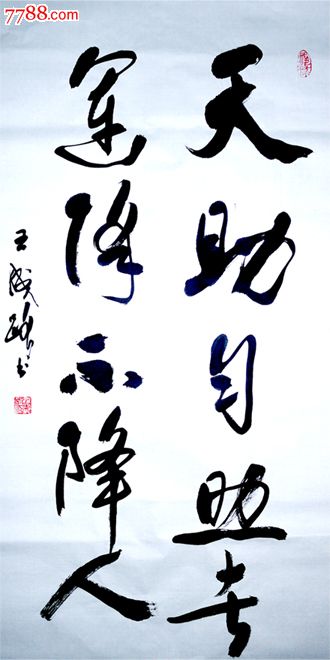 7788.com
天助自助者
運降不降人
王成 书